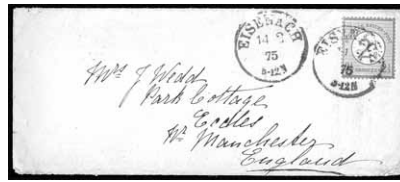 EISENACH
14 2
75
5-12N
75
5-12N
Mrs J Wedd
Park Cottage
Eccles
Nr Manchester
England